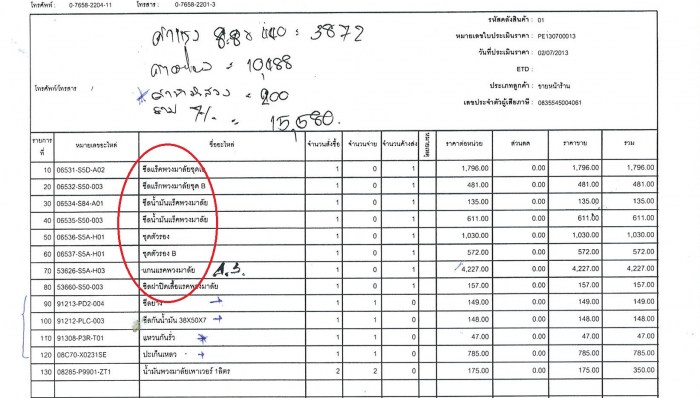 โทรศัพท์ : 0-7658-2204-11 โทรสาร : 0-7658-2201-3
รหัสคลังสินค้า : 01
หมายเลขใบประเมินราคา : PE130700013
วันที่ประเมินราคา : 02/07/2013
ETD :
ประเภทลูกค้า : ขายหน้าร้าน
เลขประจำตัวผู้เสียภาษี : 0835545004061
โทรศัพท์/โทรสาร /
ค่าแรง 8.8x 440 = 3872
= 10,188
= 200
รวม 7/. = 15,580.
รายการที่ หมายเลขอะไหล่ ชื่ออะไหล่ จำนวนสั่งซื้อ จำนวนจ่าย จำนวนค้างส่ง ราคาต่อหน่วย ส่วนลด ราคาขาย รวม
10 06531-S5D-A02 ซีลแร็คพวงมาลัยชุด 1 0 1 1,796.00 0.00 1,796.00 1,796.00
20 06532-S50-003 ซีลแร็กพวงมาลัยชุด B 1 0 1 481.00 0.00 481.00 481.00
30 06534-S84-A01 ซีลน้ำมันแร็คพวงมาลัย 1 0 1 135.00 0.00 135.00 135.00
40 06535-S50-003 ซีลน้ำมันแร็คพวงมาลัย 1 0 1 611.00 0.00 611.00 611.00
50 06536-S5A-H01 ชุดตัวรอง 1 0 1 1,030.00 0.00 1,030.00 1,030.00
60 06537-S5A-H01 ชุดตัวรอง B 1 0 1 572.00 0.00 572.00 572.00
70 53626-S5A-H03 แกนแรคพวงมาลัย A.3. 1 0 1 4,227.00 0.00 4,227.00 4,227.00
80 53660-S50-003 ซีลฝาปิดเสื้อแรคพวงมาลัย 1 0 1 157.00 0.00 157.00 157.00
90 91213-PD2-004 ซีลยาง 1 1 0 149.00 0.00 149.00 149.00
100 91212-PLC-003 ซีลกันน้ำมัน 38X50X7 1 1 0 148.00 0.00 148.00 148.00
110 91308-P3R-T01 แหวนกันรั่ว 1 1 0 47.00 0.00 47.00 47.00
120 08C70-X0231SE ปะเก็นเหลว 1 1 0 785.00 0.00 785.00 785.00
130 08285-P9901-ZT1 น้ำมันพวงมาลัยเพาเวอร์ 1ลิตร 2 2 0 175.00 0.00 175.00 350.00